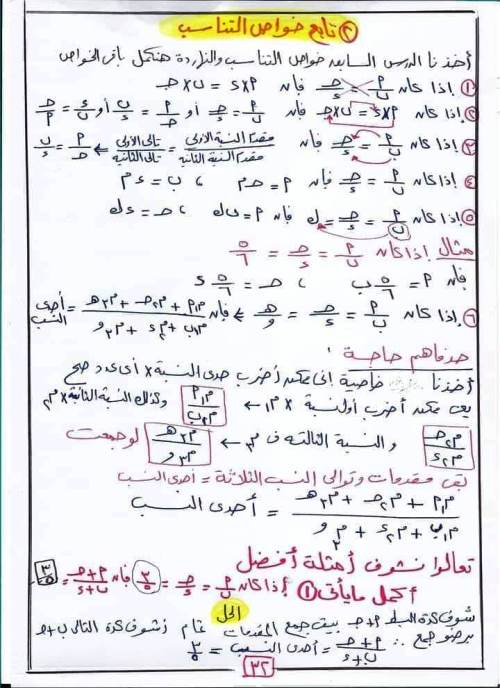 ② تابع خواص التناسب
أخذنا الدرس السابق خواص التناسب والنهاردة هنكمل باقى الخواص
① إذا كان أ/ب = ج/د فإن أ×د = ب×ج
② إذا كان أ×د = ب×ج فإن أ/ب = ج/د أو أ/ج = ب/د أو ب/أ = د/ج
③ إذا كان أ/ب = ج/د فإن مقدم النسبة الأولى/مقدم النسبة الثانية = تالى الأولى/تالى الثانية ⇐ أ/ج = ب/د
④ إذا كان أ/ب = ج/د فإن أ = ج م ، ب = د م
⑤ إذا كان أ/ب = ج/د = ك فإن أ = ب ك ، ج = د ك
مثال إذا كان أ/ب = ج/د = ٥/٦
فإن أ = ٥/٦ ب ، ج = ٥/٦ د
⑥ إذا كان أ/ب = ج/د = هـ/و ⇐ فإن م١أ + م٢ج + م٣هـ / م١ب + م٢د + م٣و = أحدى النسب
حد فاهم حاجة
أخذنا خاصية إنى ممكن أضرب حدى النسبة × أى عدد صح
يعنى ممكن أضرب أول نسبة × م١ ← م١أ/م١ب وكذلك النسبة الثانية × م٢
م٢ج/م٢د والنسبة الثالثة فى م٣ ← م٣هـ/م٣و لو جمعت
بقى مقدمات وتوالى النسب الثلاثة = أحدى النسب
م١أ + م٢ج + م٣هـ / م١ب + م٢د + م٣و = أحدى النسب
تعالوا نشوف أمثلة أفضل
أكمل ما يأتى ① إذا كان أ/ب = ج/د = ٣/٥ فإن أ+ج/ب+د = ٣/٥
الحل
شوف كدة البسط أ+ج يبقى جمع المقدمات تمام نشوف كدة التالى ب+د
برضو جمع ∴ أ+ج/ب+د = أحدى النسب = ٣/٥
٣٢